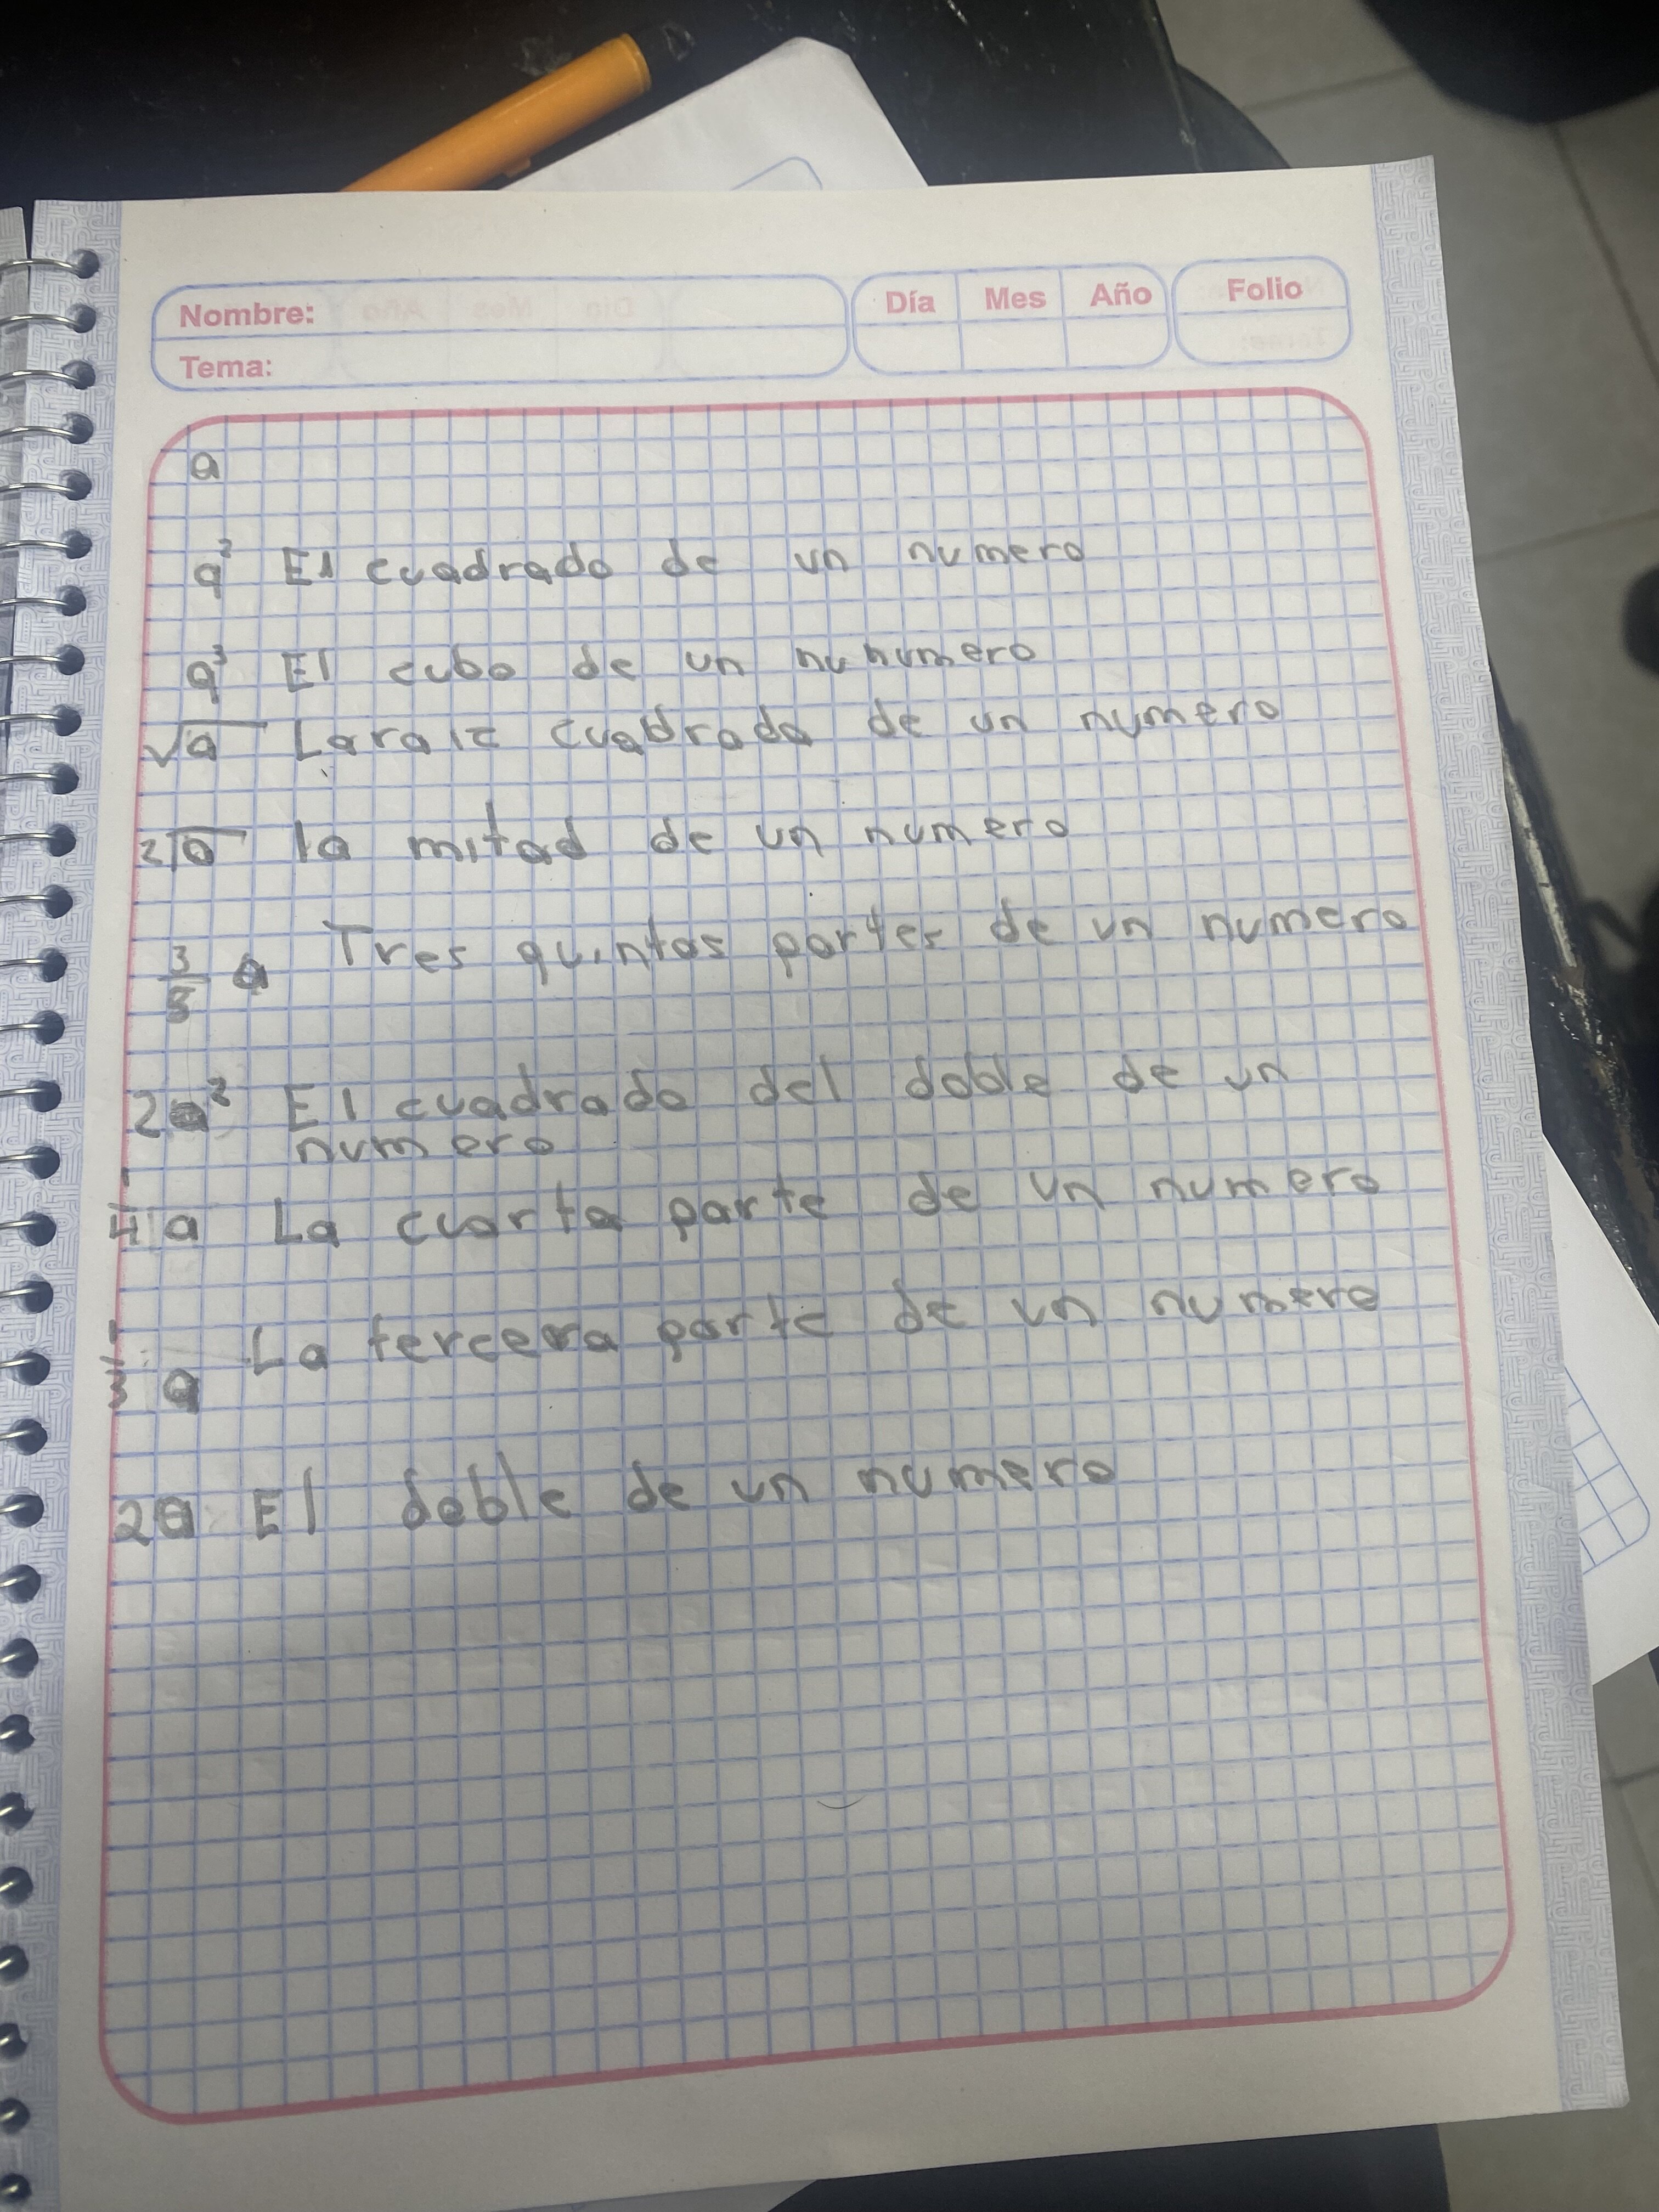 Nombre: Día Mes Año Folio
Tema:
a
a² El cuadrado de un numero
a³ El cubo de un nu numero
√a La raiz cuadrada de un numero
2√a la mitad de un numero
3/5 a Tres quintas partes de un numero
2a² El cuadrado del doble de un
numero
1/4 a La cuarta parte de un numero
1/3 a La tercera parte de un numero
2a El doble de un numero